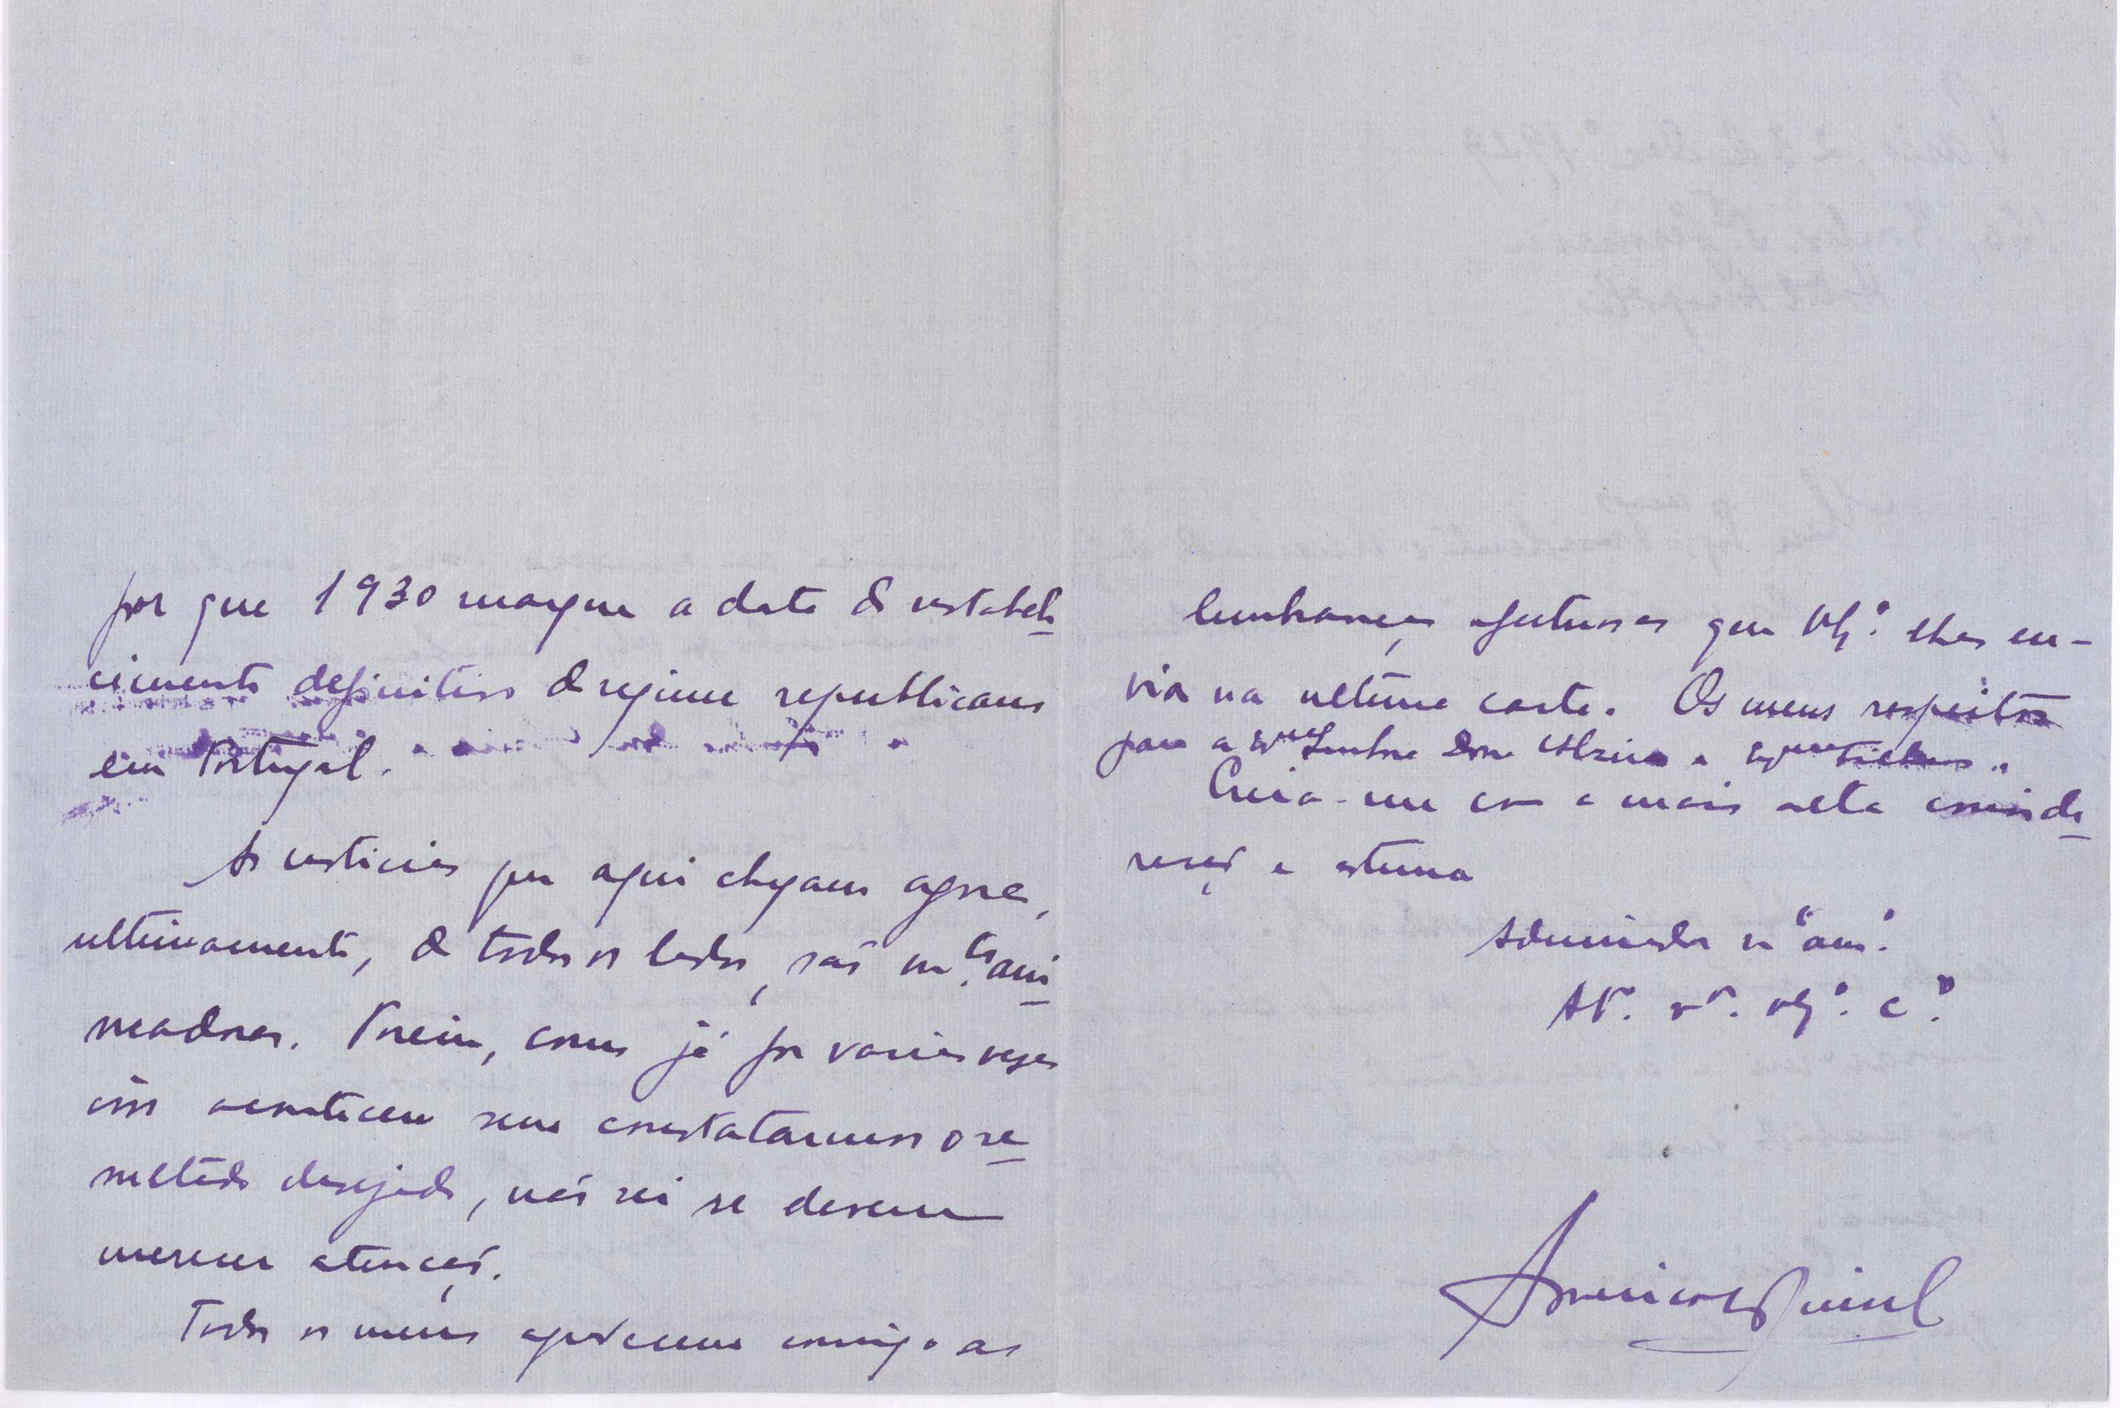 por que 1930 marque a data do restabele-
cimento definitivo do regime republicano
em Portugal.
As noticias que aqui chegam agora,
ultimamente, de todos os lados, são m.tº ani-
madoras. Porém, como já por varias vezes
isso aconteceu sem constatarmos o re-
sultado desejado, não sei se devem
merecer atenção.
Todos os meus agradecem comigo as
lembranças afectuosas que V. lhes en-
via na ultima carta. Os meus respeitos
para a Ex.ma Senhora Dona Alzira e Ex.mos Filhos.
Creia-me com a mais alta conside-
ração e estima
Admirador am.º
At.º V.º